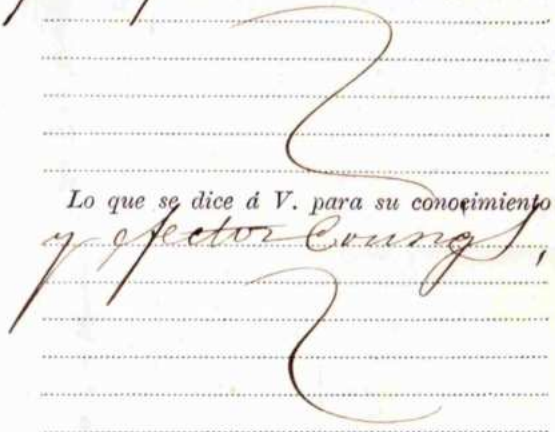 Lo que se dice á V. para su conocimiento
y efectos